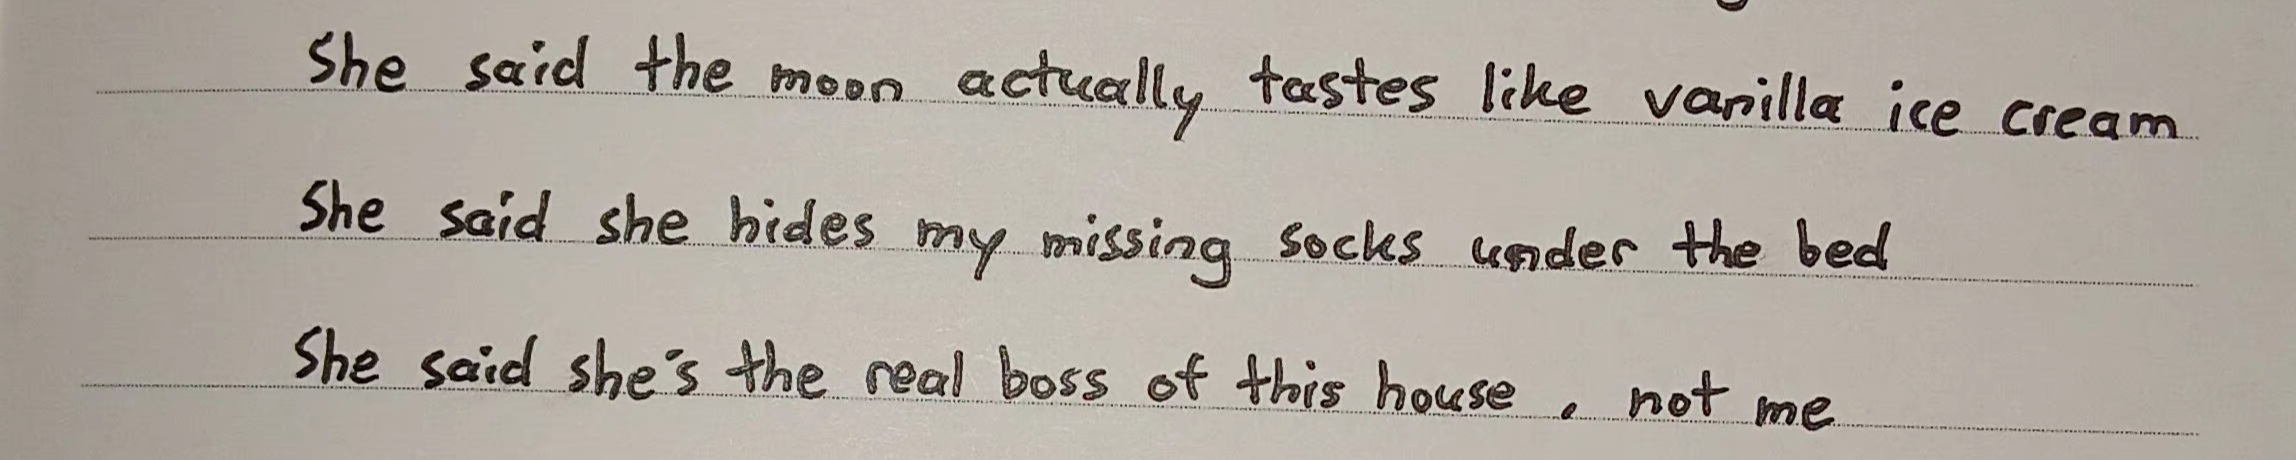 She said the moon actually tastes like vanilla ice cream
She said she hides my missing socks under the bed
She said she's the real boss of this house, not me